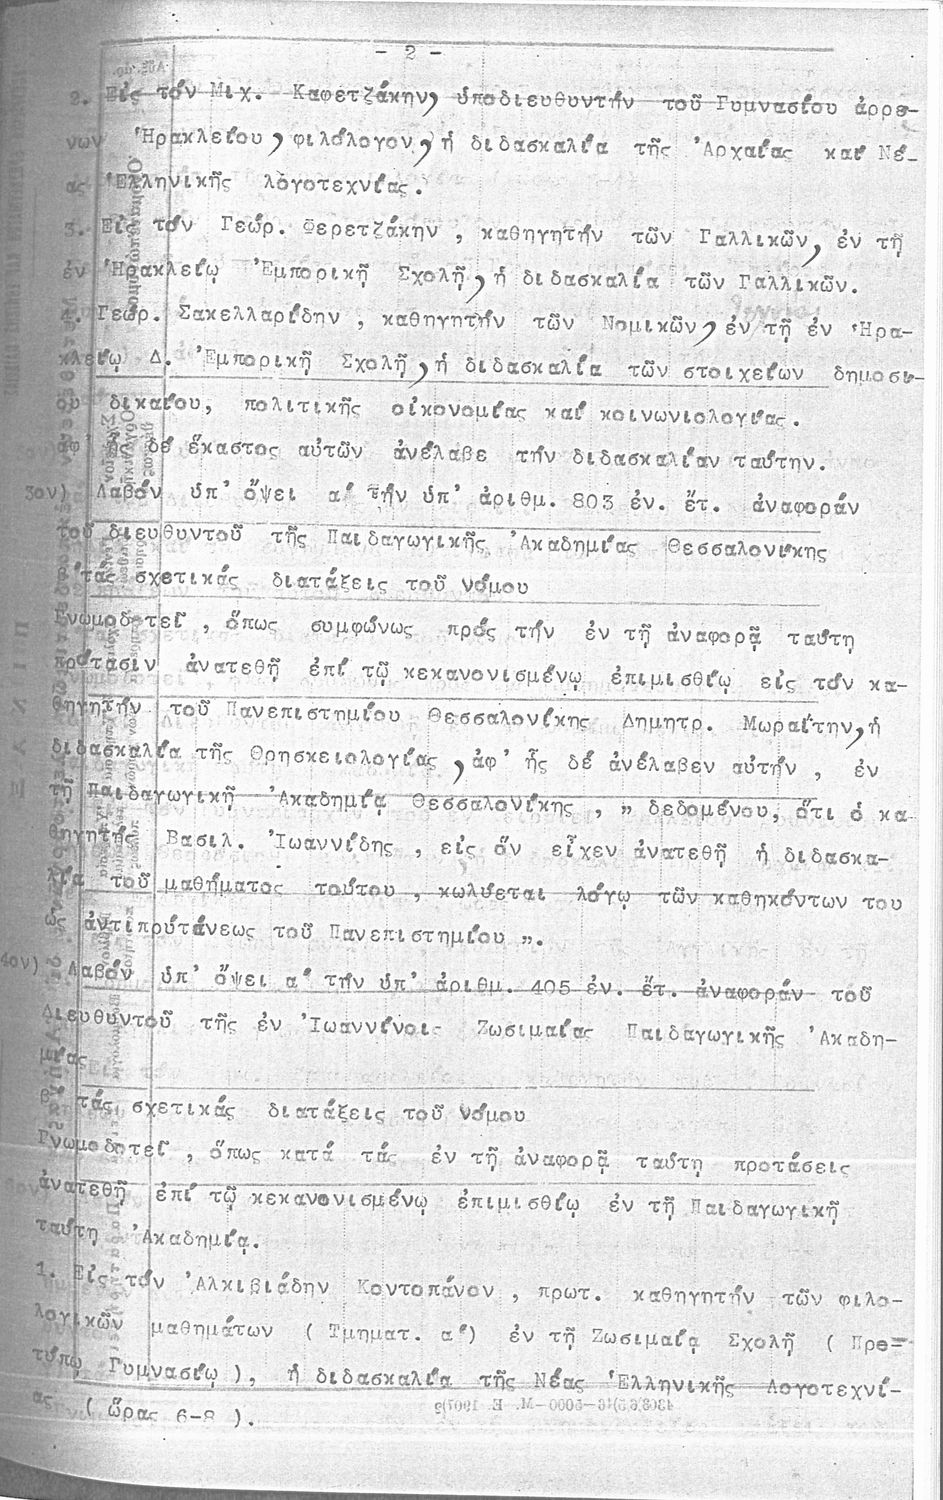 - 2 -
2. Εἰς τόν Μιχ. Καφετζάκην, ὑποδιευθυντήν τοῦ Γυμνασίου ἀρρε-
νων Ἡρακλείου, φιλόλογον, ἡ διδασκαλία τῆς Ἀρχαίας καί Νέ-
ας Ἑλληνικῆς λογοτεχνίας.
3. Εἰς τόν Γεώρ. Φερετζάκην, καθηγητήν τῶν Γαλλικῶν, ἐν τῇ
ἐν Ἡρακλείῳ Ἐμπορικῇ Σχολῇ, ἡ διδασκαλία τῶν Γαλλικῶν.
4. Γεώρ. Σακελλαρίδην, καθηγητήν τῶν Νομικῶν, ἐν τῇ ἐν Ἡρα-
κλείῳ Δ. Ἐμπορικῇ Σχολῇ, ἡ διδασκαλία τῶν στοιχείων δημοσι-
ου δικαίου, πολιτικῆς οἰκονομίας καί κοινωνιολογίας.
ἀφ' ἧς δέ ἕκαστος αὐτῶν ἀνέλαβε τήν διδασκαλίαν ταύτην.
3ον) Λαβόν ὑπ' ὄψει α' τήν ὑπ' ἀριθμ. 803 ἐν. ἔτ. ἀναφοράν
τοῦ διευθυντοῦ τῆς Παιδαγωγικῆς Ἀκαδημίας Θεσσαλονίκης
β' τάς σχετικάς διατάξεις τοῦ νόμου
Γνωμοδοτεῖ, ὅπως συμφώνως πρός τήν ἐν τῇ ἀναφορᾷ ταύτη
πρότασιν ἀνατεθῇ ἐπί τῷ κεκανονισμένῳ ἐπιμισθίῳ εἰς τόν κα-
θηγητήν τοῦ Πανεπιστημίου Θεσσαλονίκης Δημητρ. Μωραΐτην, ἡ
διδασκαλία τῆς Θρησκειολογίας, ἀφ' ἧς δέ ἀνέλαβεν αὐτήν, ἐν
τῇ Παιδαγωγικῇ Ἀκαδημίᾳ Θεσσαλονίκης, " δεδομένου, ὅτι ὁ κα-
θηγητής Βασιλ. Ἰωαννίδης, εἰς ὅν εἶχεν ἀνατεθῇ ἡ διδασκα-
λία τοῦ μαθήματος τούτου, κωλύεται λόγῳ τῶν καθηκόντων του
ὡς ἀντιπρύτάνεως τοῦ Πανεπιστημίου ".
4ον) Λαβόν ὑπ' ὄψει α' τήν ὑπ' ἀριθμ. 405 ἐν. ἔτ. ἀναφοράν τοῦ
Διευθυντοῦ τῆς ἐν Ἰωαννίνοις Ζωσιμαίας Παιδαγωγικῆς Ἀκαδη-
μίας
β' τάς σχετικάς διατάξεις τοῦ νόμου
Γνωμοδοτεῖ, ὅπως κατά τάς ἐν τῇ ἀναφορᾷ ταύτη προτάσεις
ἀνατεθῇ ἐπί τῷ κεκανονισμένῳ ἐπιμισθίῳ ἐν τῇ Παιδαγωγικῇ
ταύτη Ἀκαδημίᾳ.
1. Εἰς τόν Ἀλκιβιάδην Κοντοπάνον, πρωτ. καθηγητήν τῶν φιλο-
λογικῶν μαθημάτων ( Τμηματ. α') ἐν τῇ Ζωσιμαίᾳ Σχολῇ ( Προ-
τύπῳ Γυμνασίῳ ), ἡ διδασκαλία τῆς Νέας Ἑλληνικῆς Λογοτεχνί-
ας ( ὥρας 6-8 ).